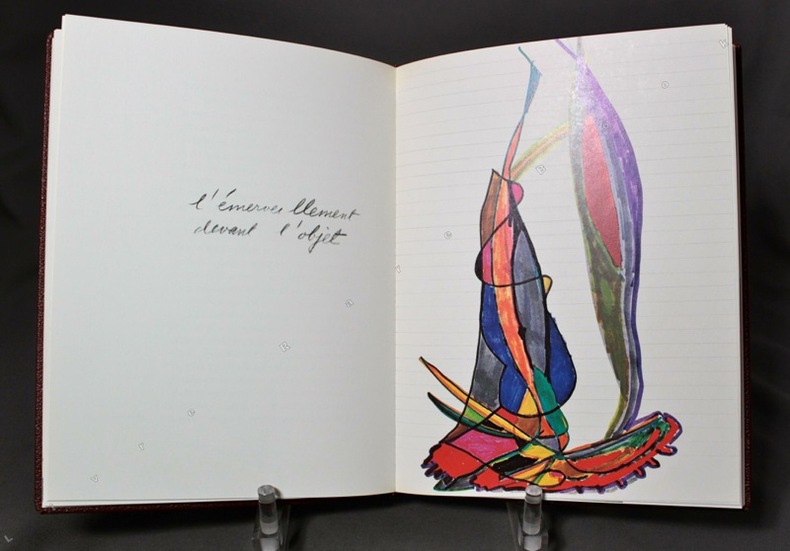 l'émerveillement
devant l'objet